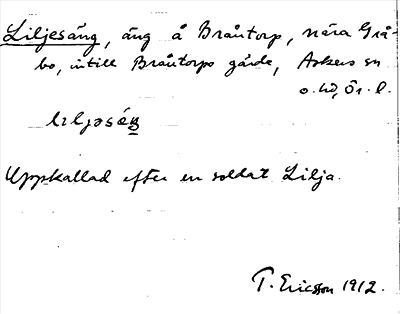 Liljesäng, äng å Bråtorp, nära Grå-
bo, intill Bråtorps gärde, Askers sn
o. hd, Ör. l.
lıljəséŋ
Uppkallad efter en soldat Lilja.
T. Ericsson 1912.